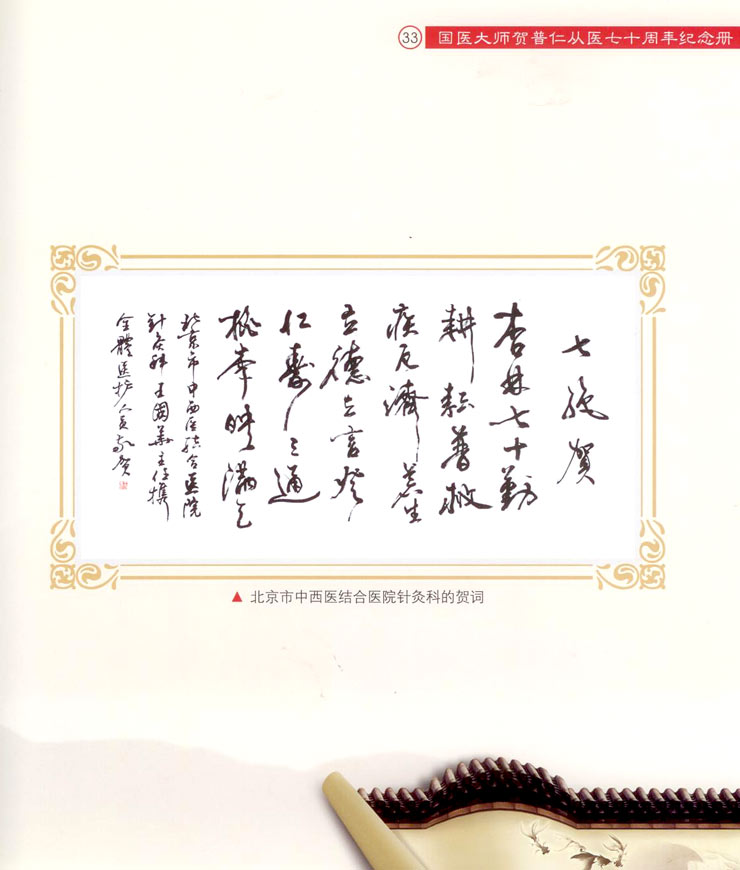 33 国医大师贺普仁从医七十周年纪念册
七绝贺
杏林七十勤
耕耘普救
疾厄濟蒼生
立德立言登
仁壽三通
桃李映滿天
北京市中西医结合医院
针灸科王國華主任携
全體医护人员敬贺
▲ 北京市中西医结合医院针灸科的贺词